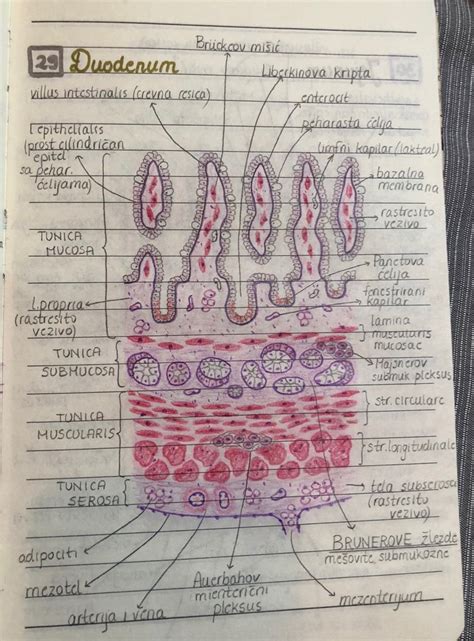 29 Duodenum
Brückcov mišić
Liberkinova kripta
villus intestinalis (crevna resica)
enterocit
peharasta ćelija
l.epithelialis
(prost cilindričan
epitel
sa pehar.
ćelijama)
limfni kapilar (lakteal)
bazalna
membrana
rastresito
vezivo
TUNICA
MUCOSA
Panetova
ćelija
fenestrirani
kapilar
l.propria
(rastresito
vezivo)
lamina
muscularis
mucosae
TUNICA
SUBMUCOSA
Majsnerov
submuk pleksus
str. circulare
TUNICA
MUSCULARIS
str. longitudinale
TUNICA
SEROSA
tela subserosa
(rastresito
vezivo)
adipociti
BRUNEROVE žlezde
mešovite, submukozne
mezotel
Auerbahov
mienterični
pleksus
arterija i vena
mezenterijum